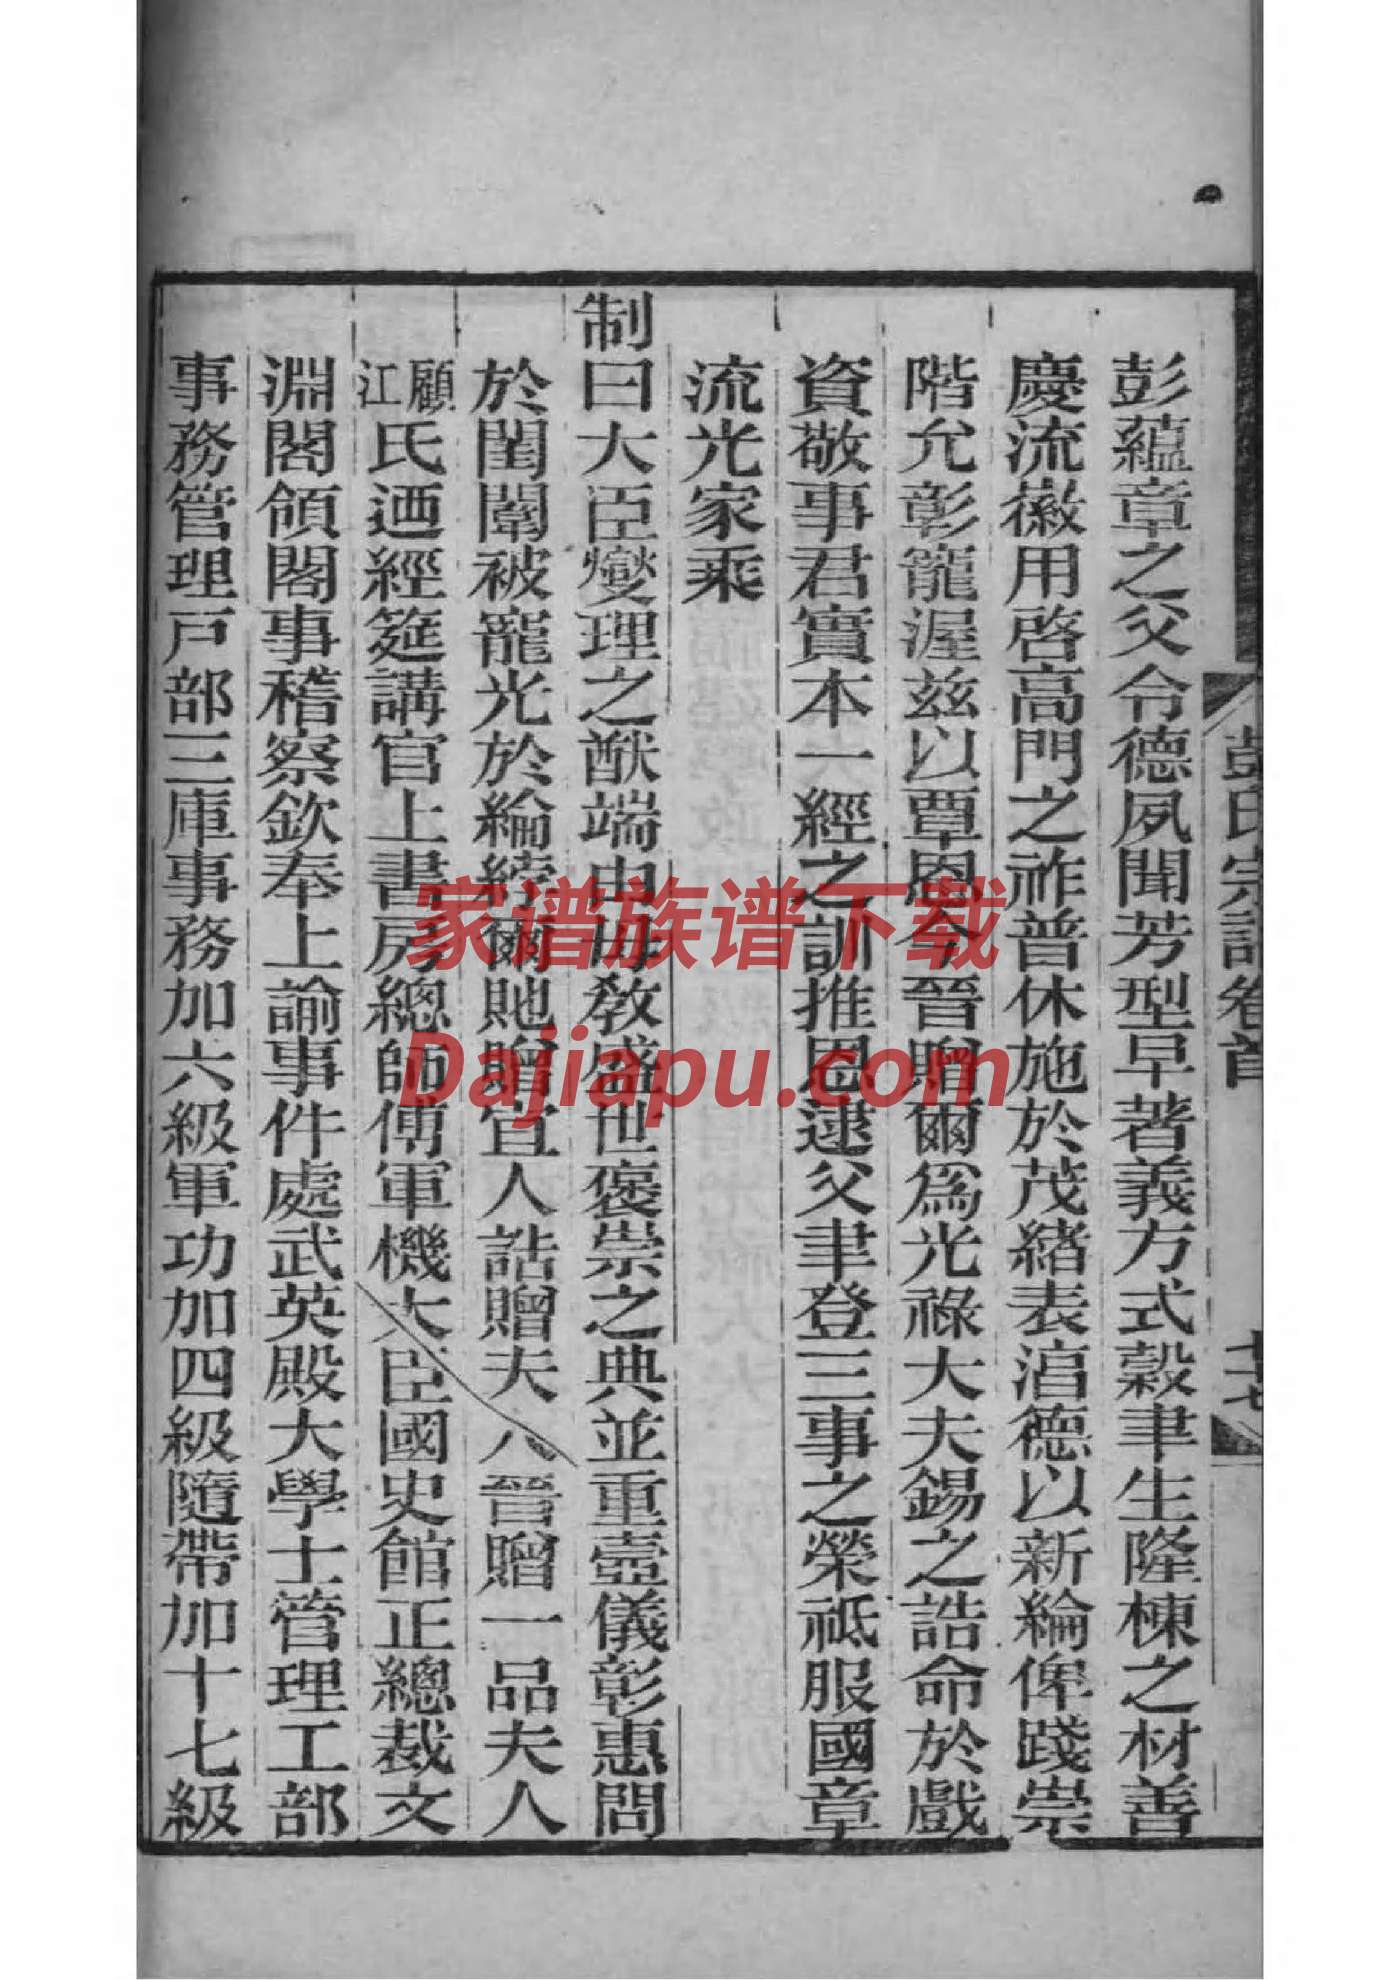 彭氏宗譜卷首
彭蘊章之父令德夙聞芳型早著義方式穀聿生隆棟之材善
慶流徽用啓高門之祚普休施於茂緒表淯德以新綸俾踐崇
階允彰寵渥兹以覃恩今晉贈爾爲光祿大夫錫之誥命於戲
資敬事君實本一經之訓推恩逮父聿登三事之榮祗服國章
流光家乘
制曰大臣燮理之猷端由母敎盛世褒崇之典並重壼儀彰惠問
於閨闈被寵光於綸綍爾貤贈宜人誥贈夫人晉贈一品夫人
顧江氏迺經筵講官上書房總師傅軍機大臣國史館正總裁文
淵閣領閣事稽察欽奉上諭事件處武英殿大學士管理工部
事務管理戸部三庫事務加六級軍功加四級隨帶加十七級
家谱族谱下载
Dajiapu.com